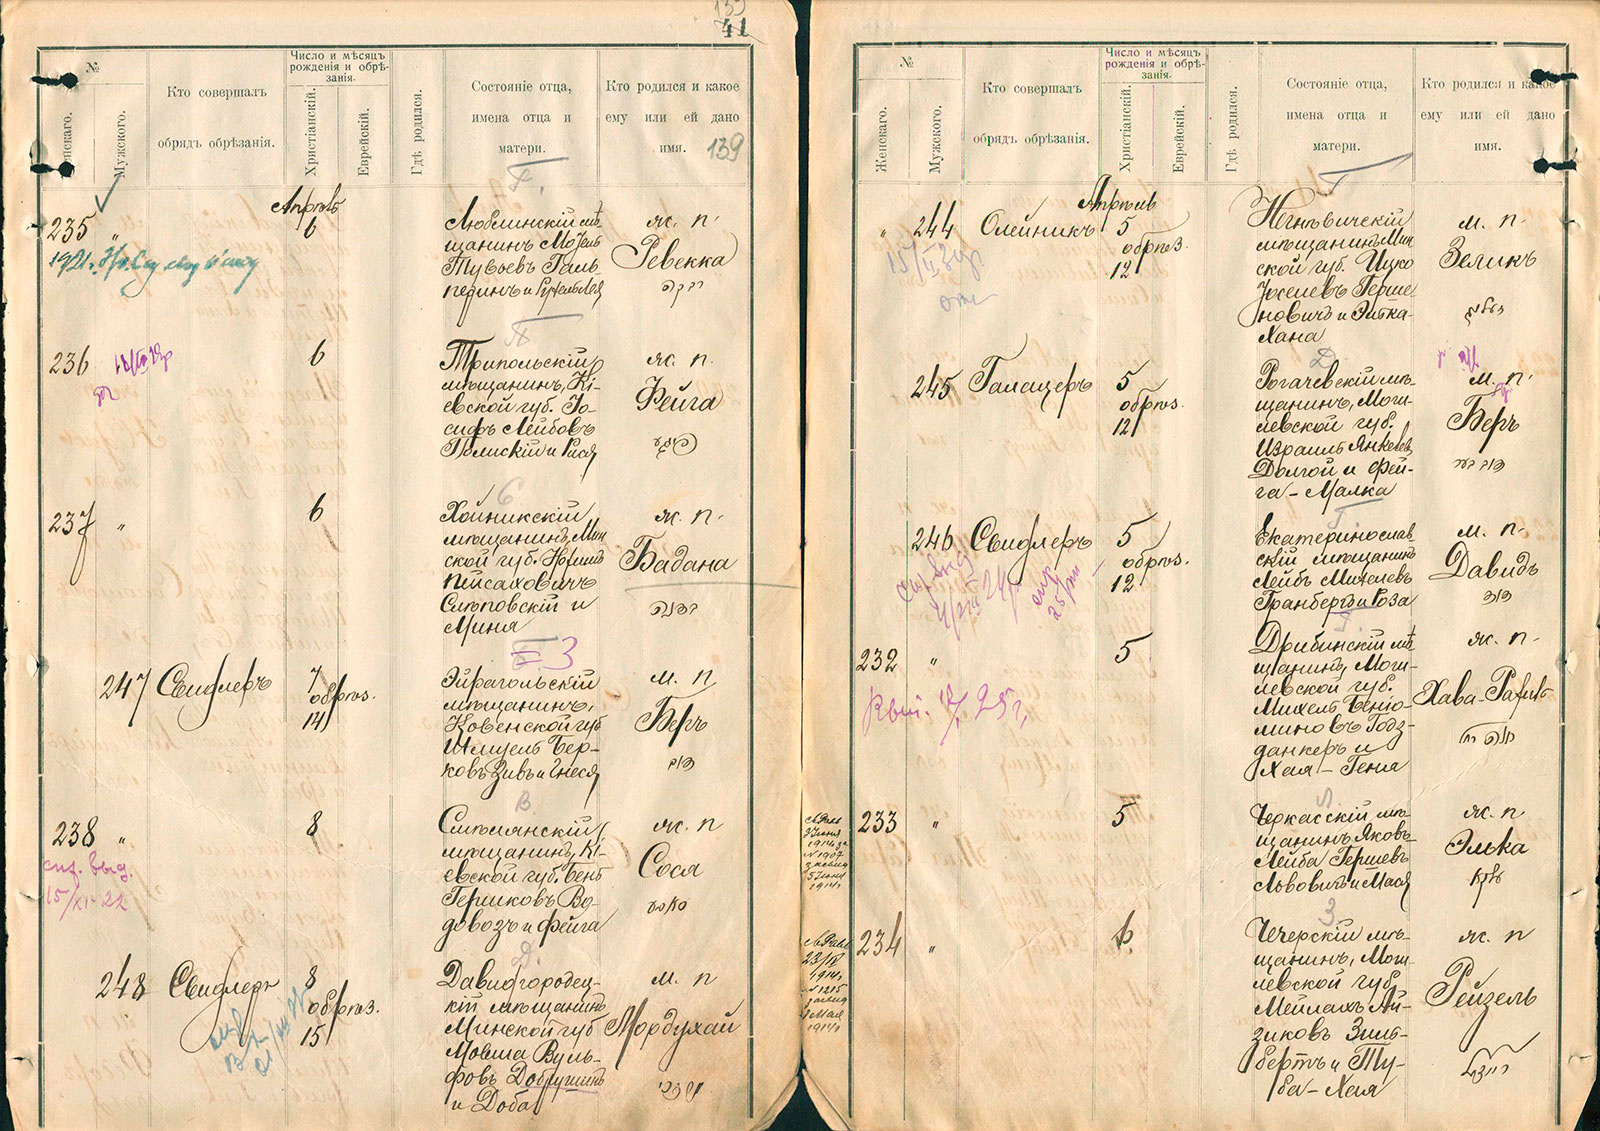 41
№
Женскаго.
Мужского.
Кто совершалъ
обрядъ обрѣзанія.
Число и мѣсяцъ
рожденія и обрѣ-
занія.
Христіанскій.
Еврейскій.
Гдѣ родился.
Состояніе отца,
имена отца и
матери.
Кто родился и какое
ему или ей дано
имя.
139
Апрѣль
235 " 6
Люблинскій мѣ-
щанинъ
Тувьевъ Галь-
перинъ и
ж. п.
Ревекка
רבקה
236
6
Трипольскій
мѣщанинъ, Кі-
евской губ. Іо-
сифъ Лейбовъ
Полискій и Рися
ж. п.
Фейга
פייגע
237 " 6
Хойникскій
мѣщанинъ, Мин
ской губ.
Пейсаховичъ
Слѣповскій и
Миня
ж. п.
Бадана
247 Свидлеръ
7
обрѣз.
14
Эйрагольскій
мѣщанинъ,
Ковенской губ
Шмуель Бер-
ковъ Зивъ и Гнеся
м. п
Беръ
דוב
238 " 8
сп. выд.
15/XI-22
Смѣлянскій
мѣщанинъ, Кі-
евской губ. Бенъ
Гершковъ Во-
довозъ и Фейга
ж. п
Сося
סאסע
248 Свидлеръ
8
обрѣз.
15
Давидгородец-
кій мѣщанинъ
Минской губ
Мовша Вуль-
фовъ Добрушинъ
и Доба
м. п
Мордухай
מרדכי
№
Женскаго.
Мужского.
Кто совершалъ
обрядъ обрѣзанія.
Число и мѣсяцъ
рожденія и обрѣ-
занія.
Христіанскій.
Еврейскій.
Гдѣ родился.
Состояніе отца,
имена отца и
матери.
Кто родился и какое
ему или ей дано
имя.
Апрѣль
" 244 Олейникъ
5
обрѣз.
12
Негнѣвичскій
мѣщанинъ Мин
ской губ. Ицко
Іоселевъ Герше-
новичъ и Эйтка-
Хана
м. п.
Зеликъ
זעליג
245 Галацеръ
5
обрѣз.
12
Рогачевскій мѣ-
щанинъ, Моги-
левской губ.
Израиль Янкелевъ
Долгой и Фей-
га-Малка
м. п.
Беръ
246 Свидлеръ
5
обрѣз.
12
Екатеринослав-
скій мѣщанинъ
Лейбъ Михелевъ
Гранбергъ и Роза
м. п.
Давидъ
דוד
232 " 5
Дрибинскій мѣ
щанинъ, Моги-
левской губ.
Михель Беніо-
миновъ Годз-
данкеръ и
Хая-Геня
ж. п.
Хава-Рахиль
חוה רחל
233 " 5
Черкасскій мѣ-
щанинъ Яковъ-
Лейба Гершевъ
Львовичъ и Мася
ж. п
Элька
עלקא
234 " 6.
Чечерскій мѣ-
щанинъ, Моги-
левской губ.
Мейлахъ Ай-
зиковъ Зиль-
бертъ и Ту-
ба-Хая
ж. п
Рейзель
רייזעל